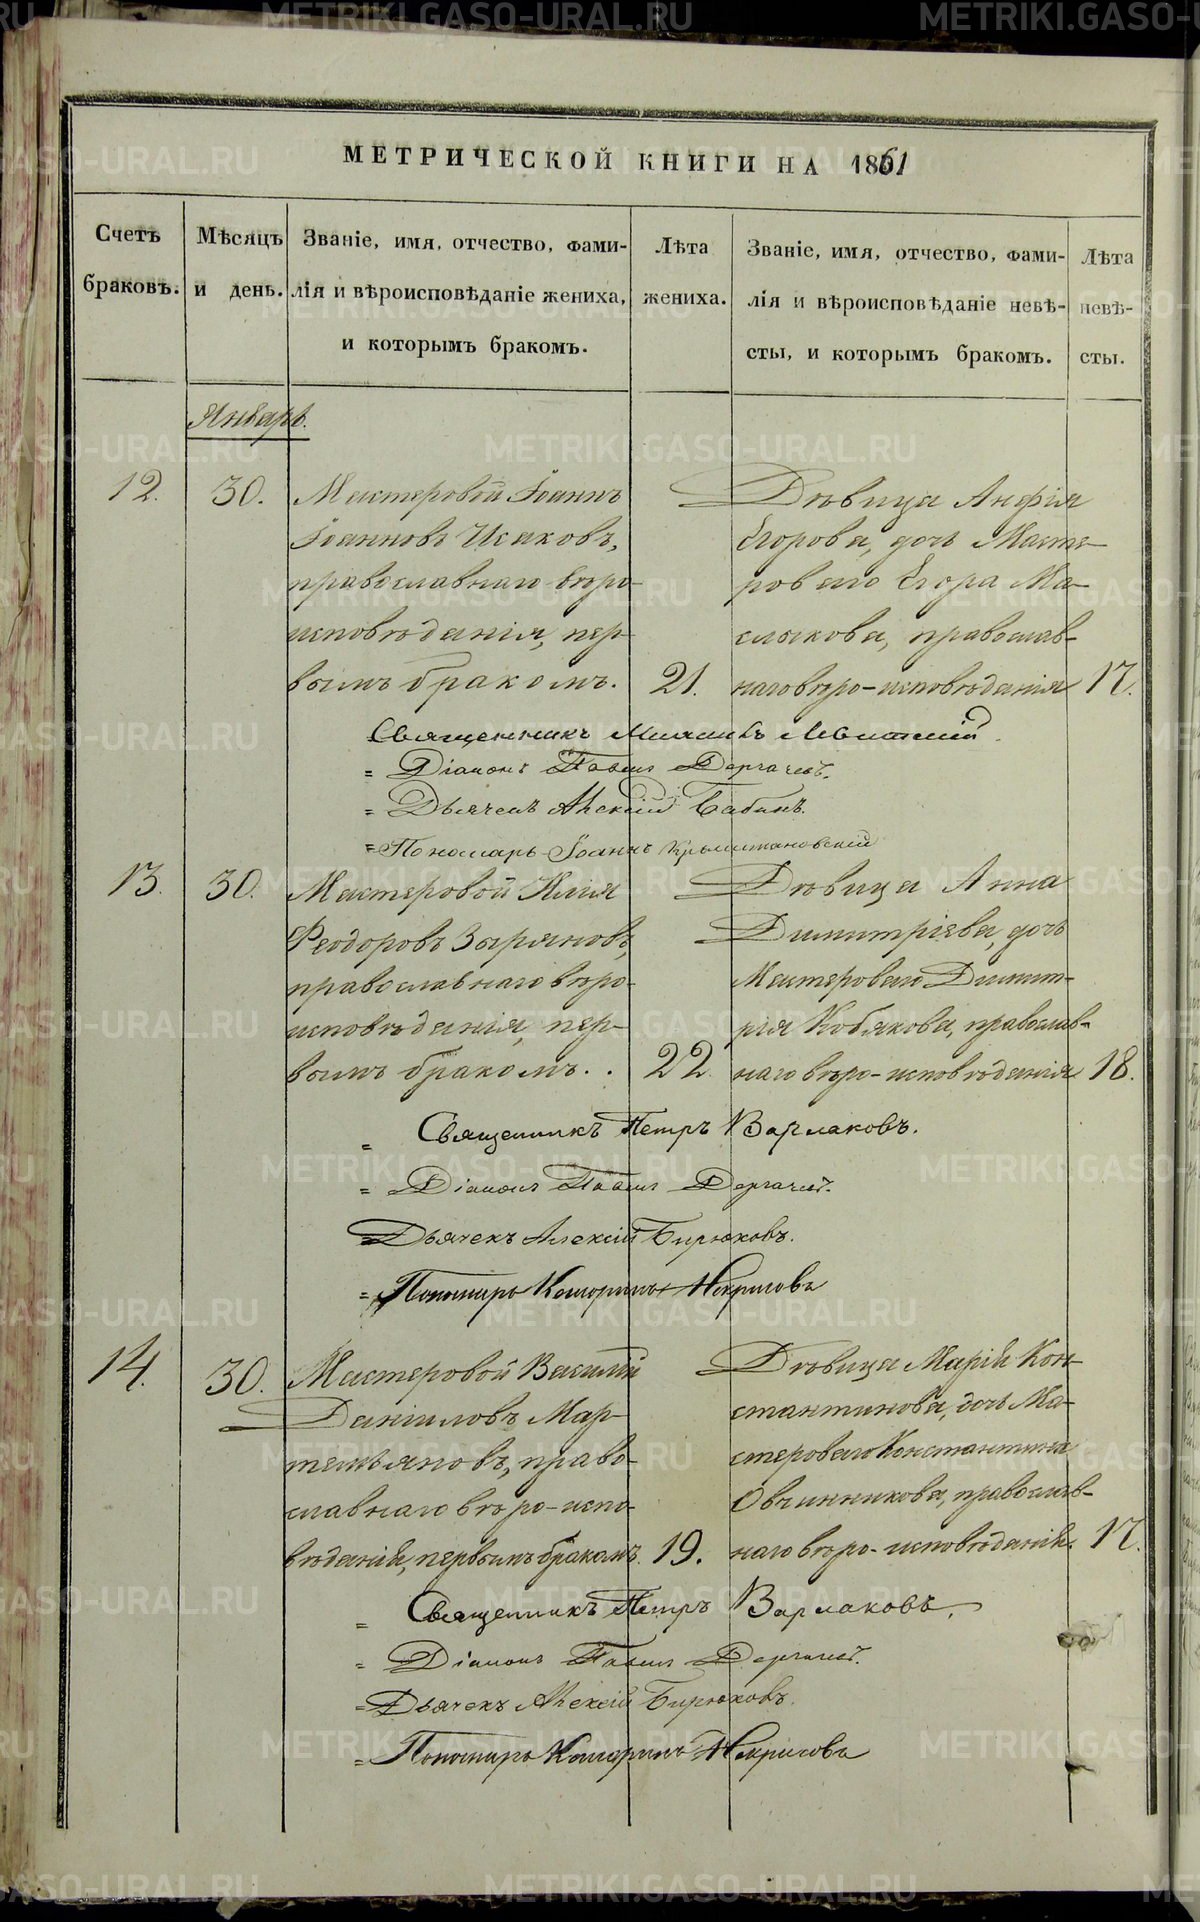 МЕТРИЧЕСКОЙ КНИГИ НА 1861
Счетъ браковъ.
Мѣсяцъ и день.
Званіе, имя, отчество, фами-
лія и вѣроисповѣданіе жениха,
и которымъ бракомъ.
Лѣта жениха.
Званіе, имя, отчество, фами-
лія и вѣроисповѣданіе невѣ-
сты, и которымъ бракомъ.
Лѣта невѣ-
сты.
Январь.
12.
30.
Мастеровой Іоаннъ
Іоанновъ Исаковъ,
православнаго вѣро-
исповѣданія, пер-
вымъ бракомъ.
21.
Дѣвица Анфія
Егорова, дочь Масте-
роваго Егора Ма-
слыкова, православ-
наго вѣро-исповѣданія
17.
Священникъ
= Діаконъ Павелъ Дергачевъ.
= Дьячекъ Алексій Бабинъ.
= Пономарь Іоаннъ
13.
30.
Мастеровой Илія
Феодоровъ Зыряновъ,
православнаго вѣро-
исповѣданія, пер-
вымъ бракомъ. .
22.
Дѣвица Анна
Димитріева, дочь
Мастероваго Димит-
рія Кобякова, православ-
наго вѣро-исповѣданія
18.
= Священникъ Петръ Варлаковъ.
= Діаконъ Павелъ Дергачевъ.
= Дьячекъ Алексій Бирюковъ.
= Пономарь Некрасовъ
14.
30.
Мастеровой Василій
Даніиловъ Мар-
темьяновъ, право-
славнаго вѣро-испо-
вѣданія, первымъ бракомъ.
19.
Дѣвица Марія Кон-
стантинова, дочь Ма-
стероваго Константина
Овчинникова, православ-
наго вѣро-исповѣданія.
17.
= Священникъ Петръ Варлаковъ.
= Діаконъ Павелъ Дергачевъ.
= Дьячекъ Алексій Бирюковъ.
= Пономарь Некрасовъ
METRIKI.GASO-URAL.RU